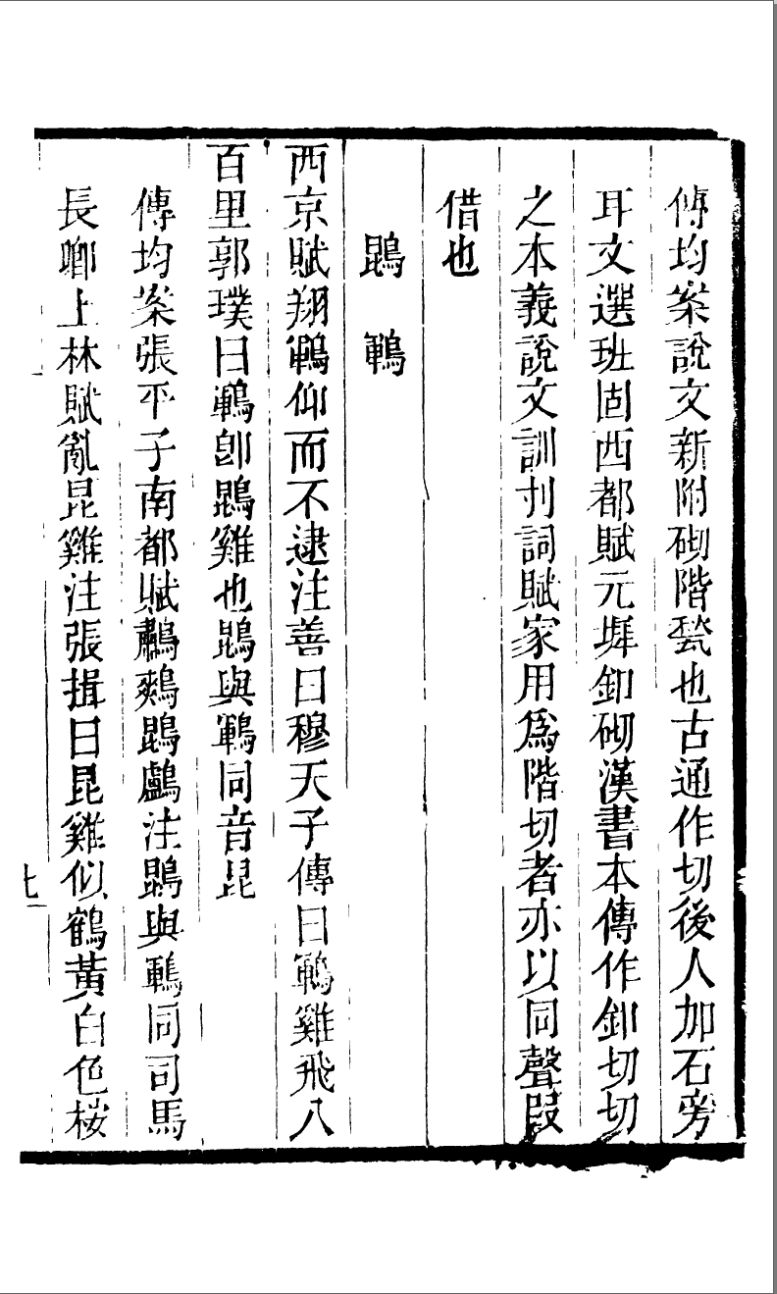 傅均案說文新附砌階甃也古通作切後人加石旁
耳文選班固西都賦元墀釦砌漢書本傳作釦切切
之本義說文訓刌詞賦家用爲階切者亦以同聲叚
借也
鵾鶤
西京賦翔鶤仰而不逮注善曰穆天子傳曰鶤雞飛八
百里郭璞曰鶤卽鵾雞也鵾與鶤同音昆
傅均案張平子南都賦鷫鷞鵾鸕注鵾與鶤同司馬
長卿上林賦亂昆雞注張揖曰昆雞似鶴黃白色桉
七